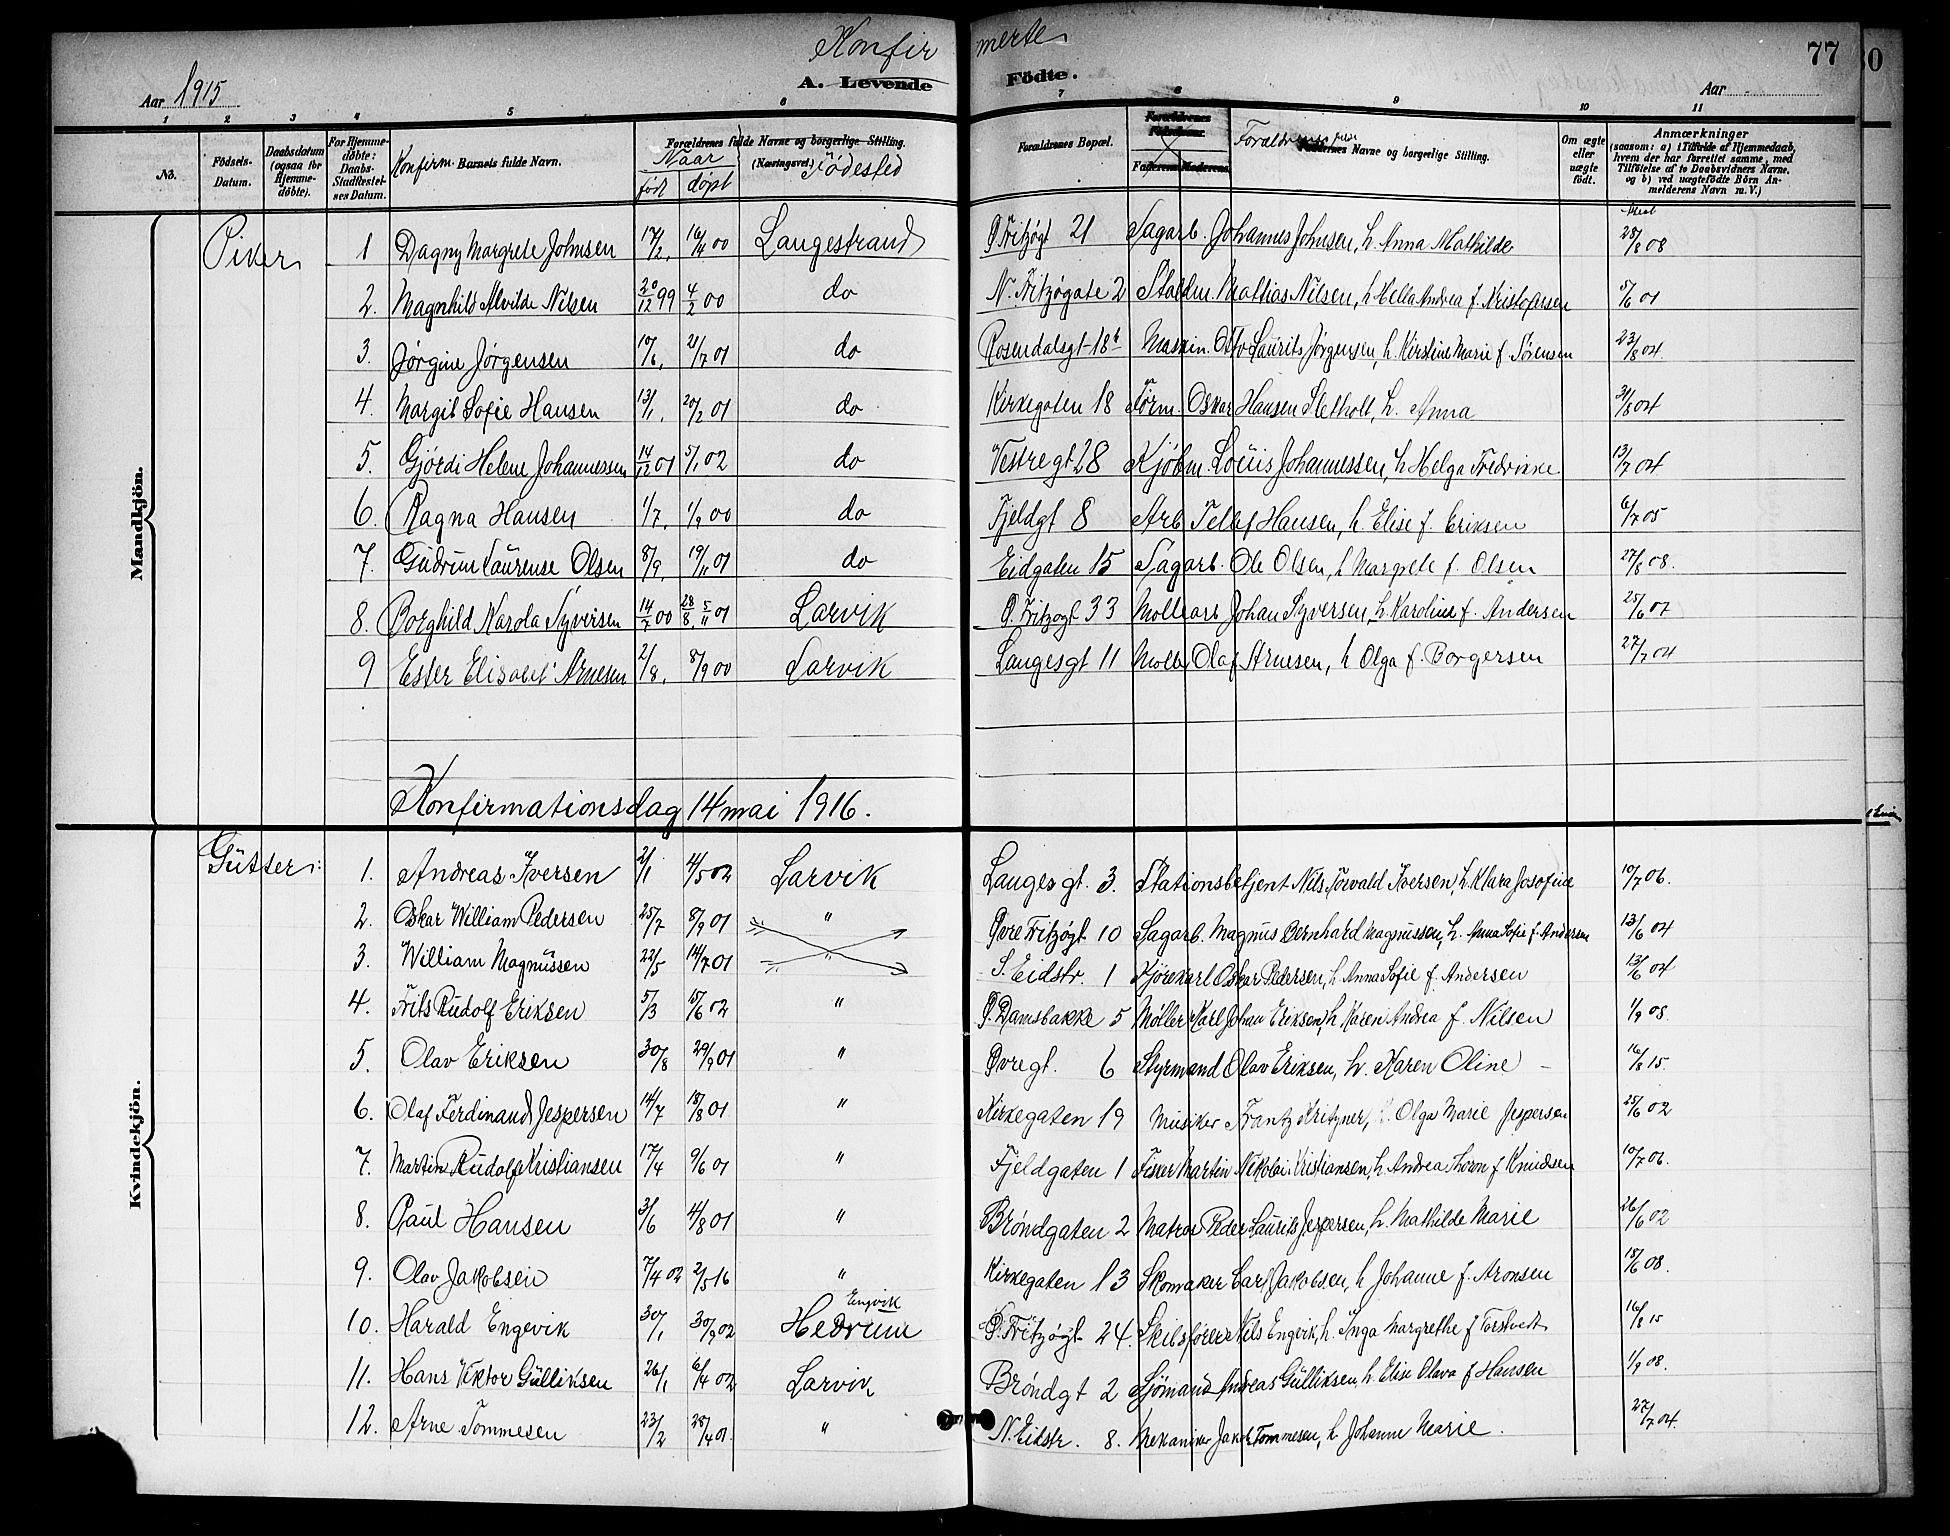 Konfirmerte
77
Aar 1915
A. Levende Födte.
Aar
1 2 3 4 5 6 7 8 9 10 11
No.
Födsels-Datum.
Daabsdatum (ogsaa for Hjemmedöbte).
For Hjemmedöbte: Daabs-Stadfæstelses Datum.
Konfirm. Barnets fulde Navn.
Forældrenes fulde Navne og borgerlige Stilling. (Næringsvei.)
Naar født døpt Fødested
Forældrenes Bopæl.
Faderens Moderens
Foraldrenes fulde Navne og borgerlige Stilling.
Om ægte eller uægte födt.
Anmærkninger (saasom: a) i Tilfælde af Hjemmedaab, hvem der har forrettet samme, med Tilföielse af to Daabsvidners Navne, og b) ved uægtefödte Börn Anmelderens Navn m. V.)
Mandkjön.
Piker
1 Dagny Margrete Johnsen 17/2, 16/4 00 Langestrand Ø Fritzøgt 21 Sagarb. Johannes Johnsen, h. Anna Mathilde 28/8 08
2. Magnhild Alvilde Nilsen 20/12 99 4/2 00 do N. Fritzøgate 2 Staldm. Mathias Nilsen, h Hella Andrea f. Kristofersen 5/6 01
3. Jørgine Jørgensen 10/6, 21/7 01 do Rosendalsgt 18b Maskin. Otto Laurits Jørgensen, h. Kirstine Marie f. Sørensen 23/8 04
4. Margit Sofie Hansen 13/1, 20/2 01 do Kirkegaten 18 Form. Oskar Hansen Sletholt, h. Anna 31/8 04
5. Gjordi Helene Johannessen 14/12 01 5/1 02 do Vestregt 28 Kjøbm. Louis Johannessen, h Helga Fredrikke 13/7 04
6. Ragna Hansen 1/7, 1/9 00 do Fjeldgt 8 Arb. Tellef Hansen, h. Elise f. Eriksen 6/7 05
7. Gudrun Laurense Olsen 8/9, 19/11 01 do Eidgaten 15 Sagarb. Ole Olsen, h Margrete f. Olsen 27/8 08.
8. Borghild Karola Syversen 14/7 00 28/8, 5/11 01 Larvik Ø. Fritzøgt 33 Møllearb Johan Syversen, h Karoline f. Andersen 25/6 07
9 Ester Elisabet Arnesen 2/8, 8/9 00 Larvik Langesgt 11 Møller Olaf Arnesen, h Olga f. Borgersen 27/7 04
Konfirmationsdag 14 mai 1916.
Kvindekjön.
Gutter:
1. Andreas Iversen 2/1 4/5 02 Larvik Langesgt. 3. Stationsbetjent Nils Torvald Iversen, h. Klara Josofine 10/7 06.
2. Oskar William Pedersen 25/7 8/9 01 " Øvre Fritzøgt 10 Sagarb. Magnus Bernhard Magnussen, h. Anna Sofie f. Andersen 13/6 04
3. William Magnussen 22/5 14/7 01 " S. Eidstr. 1 Kjørekarl Oskar Pedersen, h Anna Sofie f. Andersen 13/6 04
4. Frits Rudolf Eriksen 5/3 15/6 02 " Ø. Damsbakke 5 Møller Karl Johan Eriksen, h Karen Andrea f. Nilsen 1/9 08.
5. Olav Eriksen 30/8 29/9 01 " Øvregt. 6 Styrmand Olav Eriksen, h. Karen Oline 16/8 15.
6. Olaf Ferdinand Jespersen 14/7 18/8 01 " Kirkegaten 19 Musiker Frantz Kritzner, Olga Marie Jespersen 25/6 02
7. Martin Rudolf Kristiansen 17/4 9/6 01 " Fjeldgaten 1 Fisker Martin Nikolai Kristiansen, h Andrea Thorn f Knudsen 10/7 06.
8. Paul Hansen 3/6 4/8 01 " Brøndgaten 2 Matros Peder Laurits Jespersen, h. Mathilde Marie 26/6 02
9. Olav Jakobsen 7/4 02 2/5 16 " Kirkegaten 13 Skomaker Carl Jakobsen, h Johanne f. Aronsen 18/6 08.
10. Harald Engevik 30/1 30/9 02 Engvik Hedrum Ø. Fritzøgt 24. Skibsfører Nils Engevik, h. Inga Margrethe f Torstvedt 16/8 15
11. Hans Viktor Gulliksen 26/1 6/4 02 Larvik Brøndgt 2 Sjømand Andreas Gulliksen, h. Elise Olava f Hansen 1/9 08.
12. Arne Tommesen 23/2 28/4 01. " N. Eidstr. 8. Mekaniker Jakob Tommesen, h. Johanne Marie. 27/7 04.